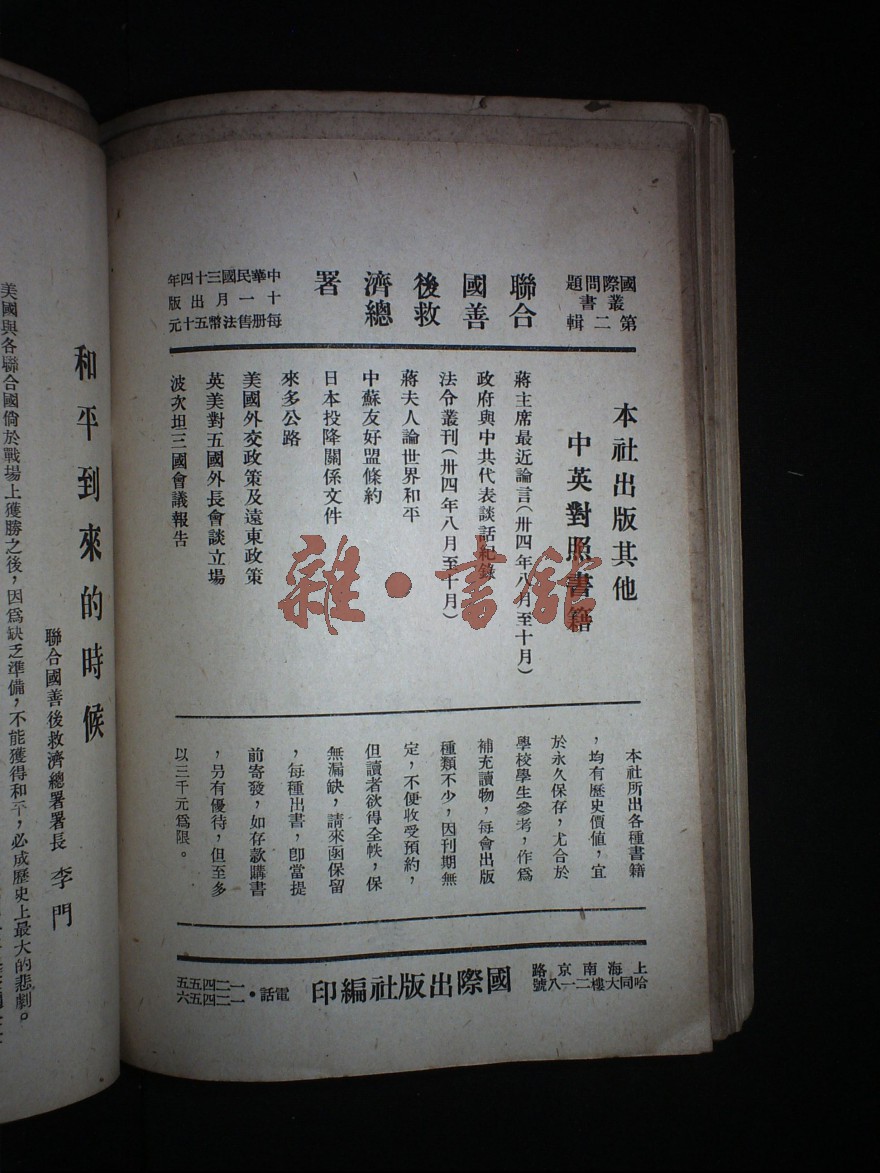 國際問題
叢書
第二輯
聯合國善後救濟總署
中華民國三十四年
十一月出版
每冊售法幣五十元
本社出版其他
中英對照書籍
蔣主席最近論言(卅四年八月至十月)
政府與中共代表談話紀錄
法令叢刊(卅四年八月至十月)
蔣夫人論世界和平
中蘇友好盟條約
日本投降關係文件
來多公路
美國外交政策及遠東政策
英美對五國外長會談立場
波次坦三國會議報告
本社所出各種書籍
，均有歷史價值，宜
於永久保存，尤合於
學校學生參考，作爲
補充讀物，每會出版
種類不少，因刊期無
定，不便收受預約，
但讀者欲得全帙，保
無漏缺，請來函保留
，每種出書，卽當提
前寄發，如存款購書
，另有優待，但至多
以三千元爲限。
上海南京路
哈同大樓二一八號
國際出版社編印
電話・一二四五五
一二四五六
和平到來的時候
聯合國善後救濟總署署長 李門
美國與各聯合國倘於戰場上獲勝之後，因爲缺乏準備，不能獲得和平，必成歷史上最大的悲劇。
雜・書館